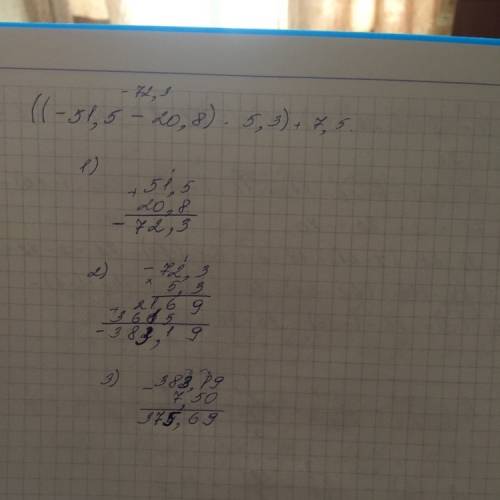 -72,3
((-51,5 - 20,8) · 5,3) + 7,5.
1)
+ 51,5
20,8
-72,3
2)
-72,3
× 5,3
2169
3615
-383,19
3)
-383,19
7,50
375,69